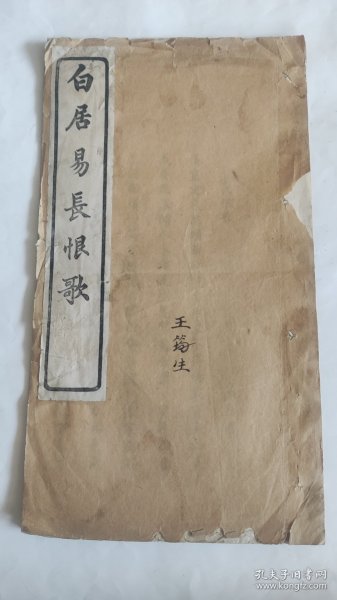 白居易長恨歌
王筠生
孔夫子旧书网
www.kongfz.com